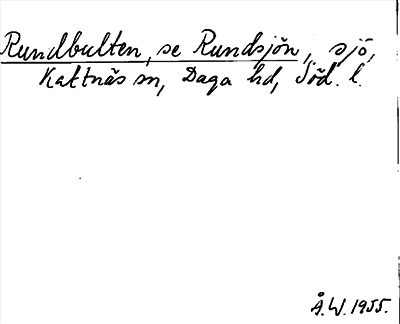 Rundbulten, se Rundsjön, sjö,
Kattnäs sn, Daga hd, Söd. l.
Å.W. 1955.